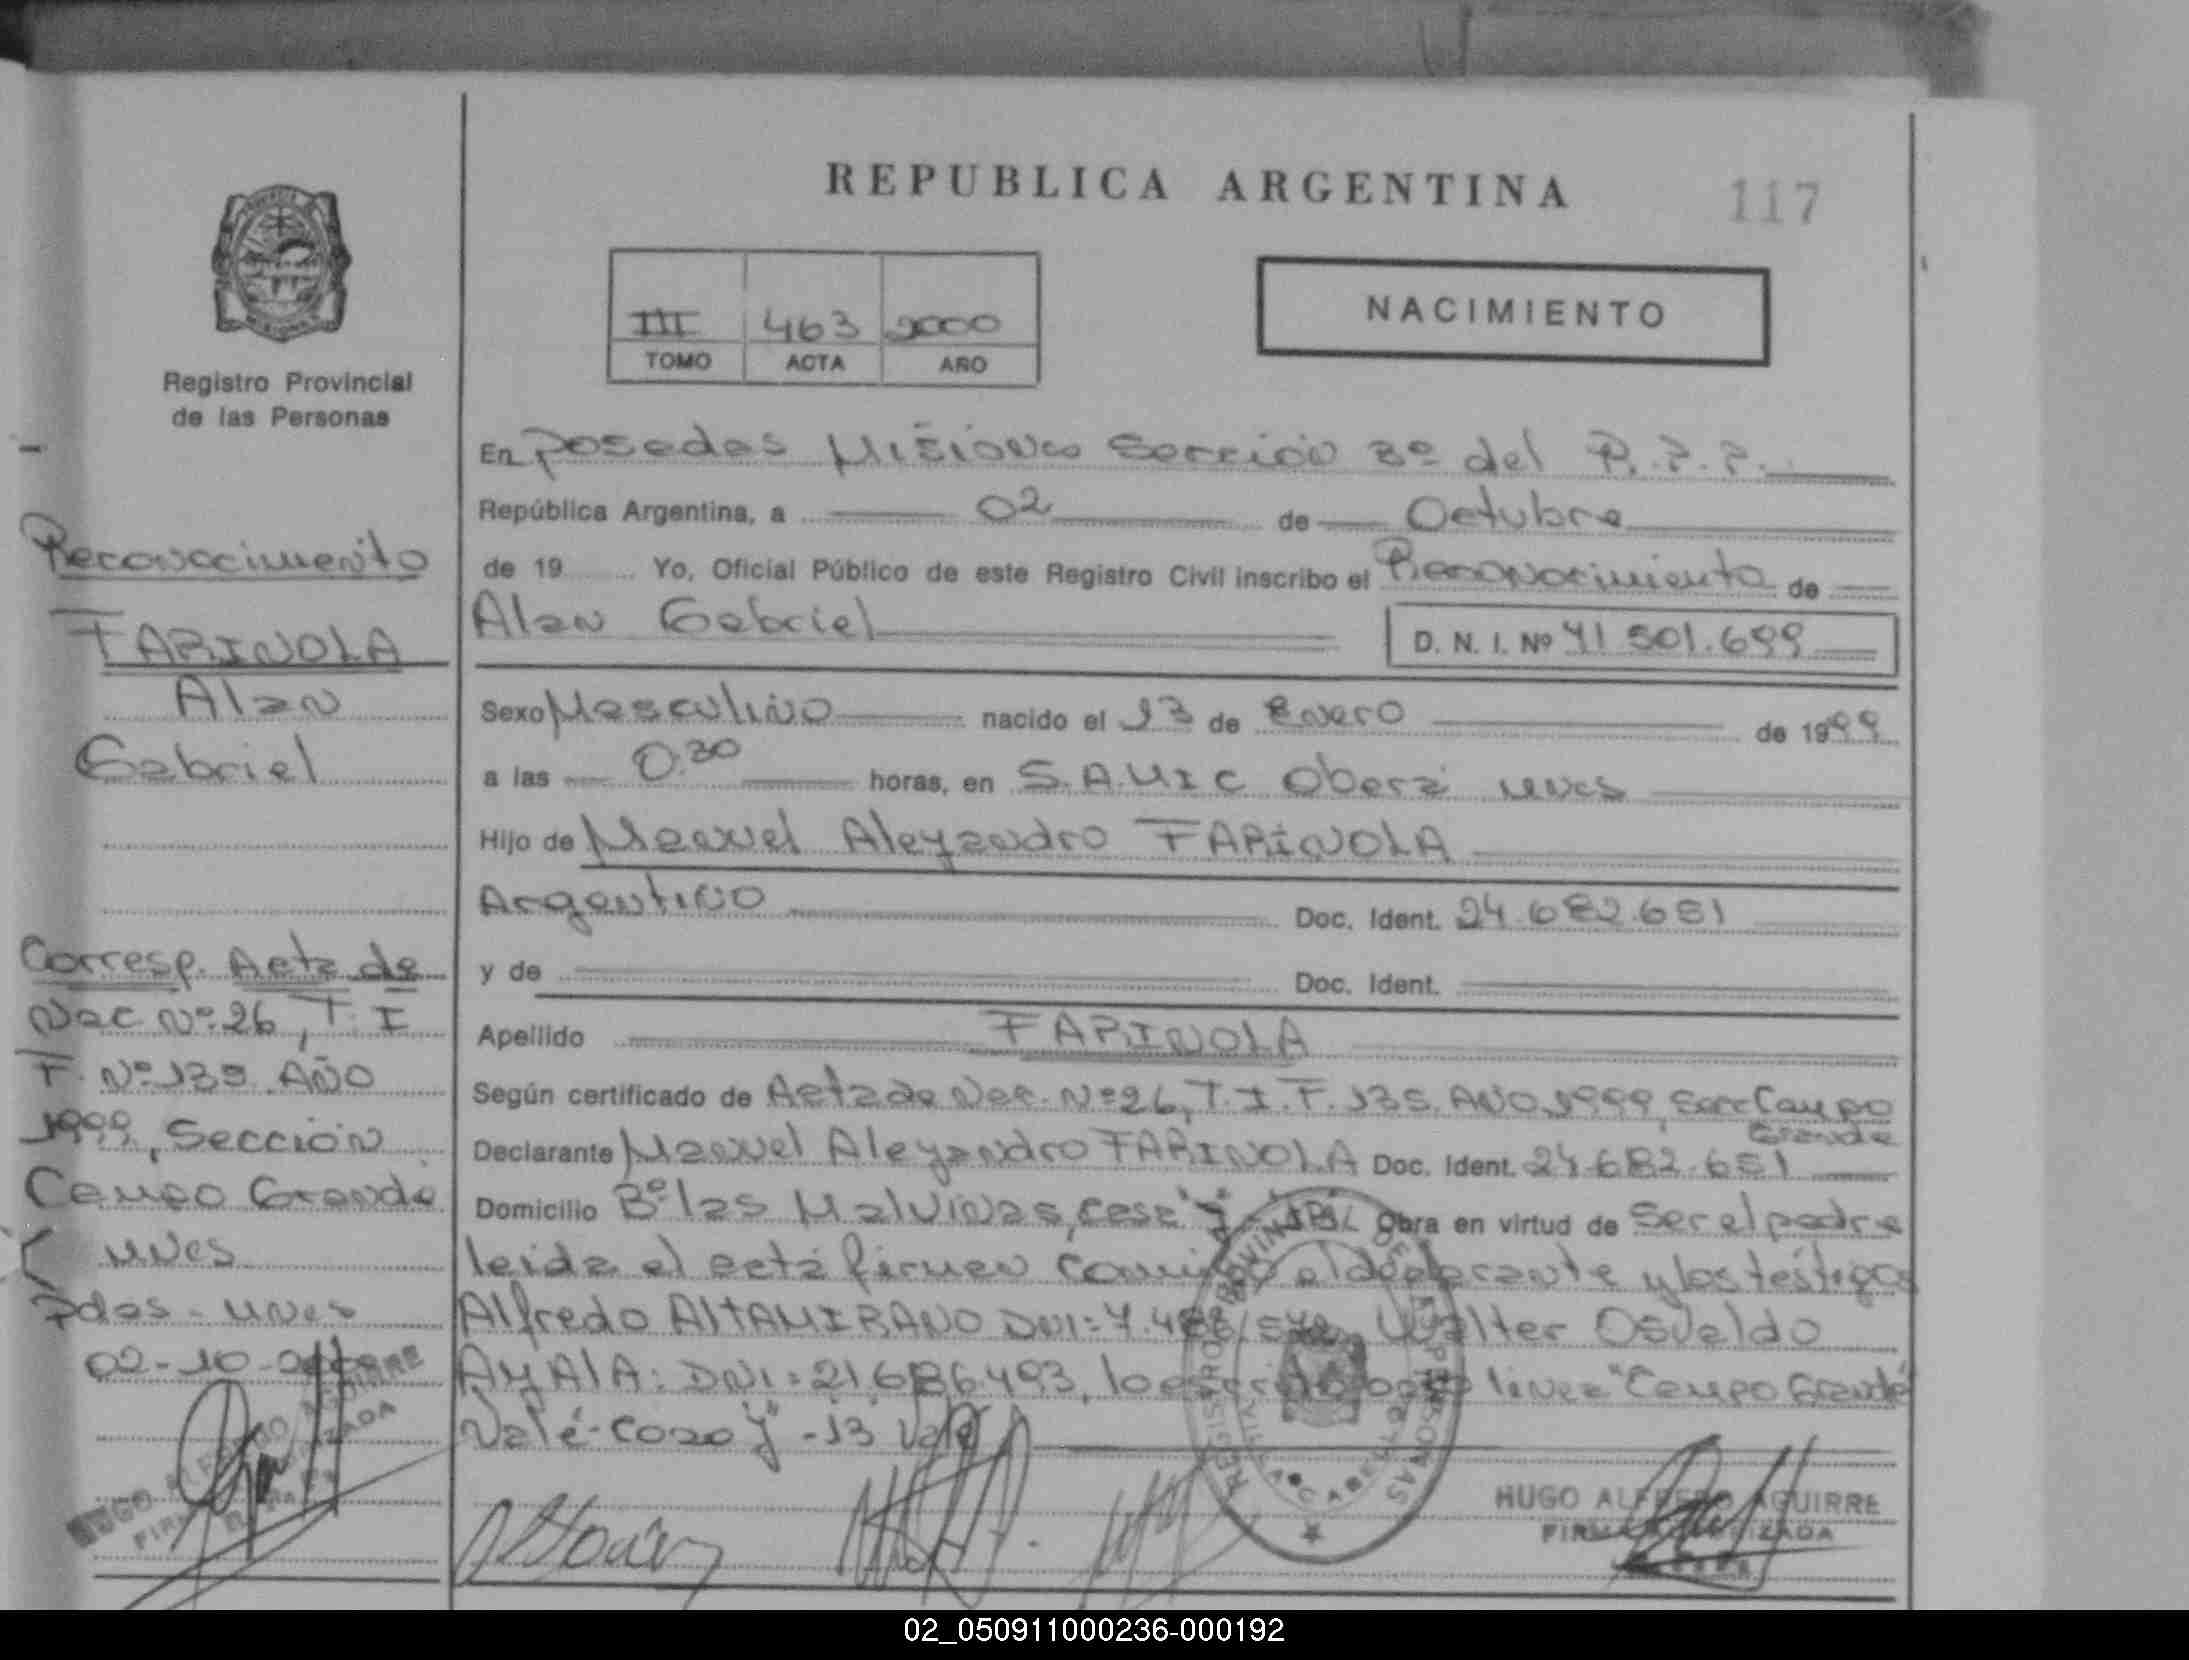 REPUBLICA ARGENTINA
117
III 463 2000
TOMO ACTA AÑO
NACIMIENTO
Registro Provincial
de las Personas
Reconocimiento
FARINOLA
Alan
Gabriel
Corresp. Acta de
Nac Nº 26, T. I
F. Nº 139 AÑO
1999, Sección
Campo Grande
Mnes
Pdas - Mnes
02-10-
En Posadas Misiones Sección 3º del R.P.P.
República Argentina, a 02 de Octubre
de 19 Yo, Oficial Público de este Registro Civil inscribo el Reconocimiento de
Alan Gabriel
D. N. I. Nº 41 501.699
Sexo Masculino nacido el 13 de Enero de 1999
a las 0.30 horas, en S.A.M.I.C Oberá Mnes
Hijo de Manuel Aleyandro FARINOLA
Argentino Doc. Ident. 24.682.651
y de Doc. Ident.
Apellido FARINOLA
Según certificado de Acta de Nac. Nº 26, T. I. F. 139. AÑO 1999, Campo
Grande
Declarante Manuel Aleyandro FARINOLA Doc. Ident. 24.682.651
Domicilio Bº las Malvinas, case "J" - Obra en virtud de Ser el padre
leida el acta firman el declarante y los testigos
Alfredo ALTAMIRANO DNI: Walter Osvaldo
AYALA: DNI: 21.686.493, linea "Campo Grande
Vale - "J" - 13 Vale
REGISTRO PROVINCIAL DE LAS PERSONAS
HUGO ALFREDO AGUIRRE
FIRMA AUTORIZADA
R. P. P.
HUGO ALFREDO AGUIRRE
FIRMA AUTORIZADA
02_050911000236-000192